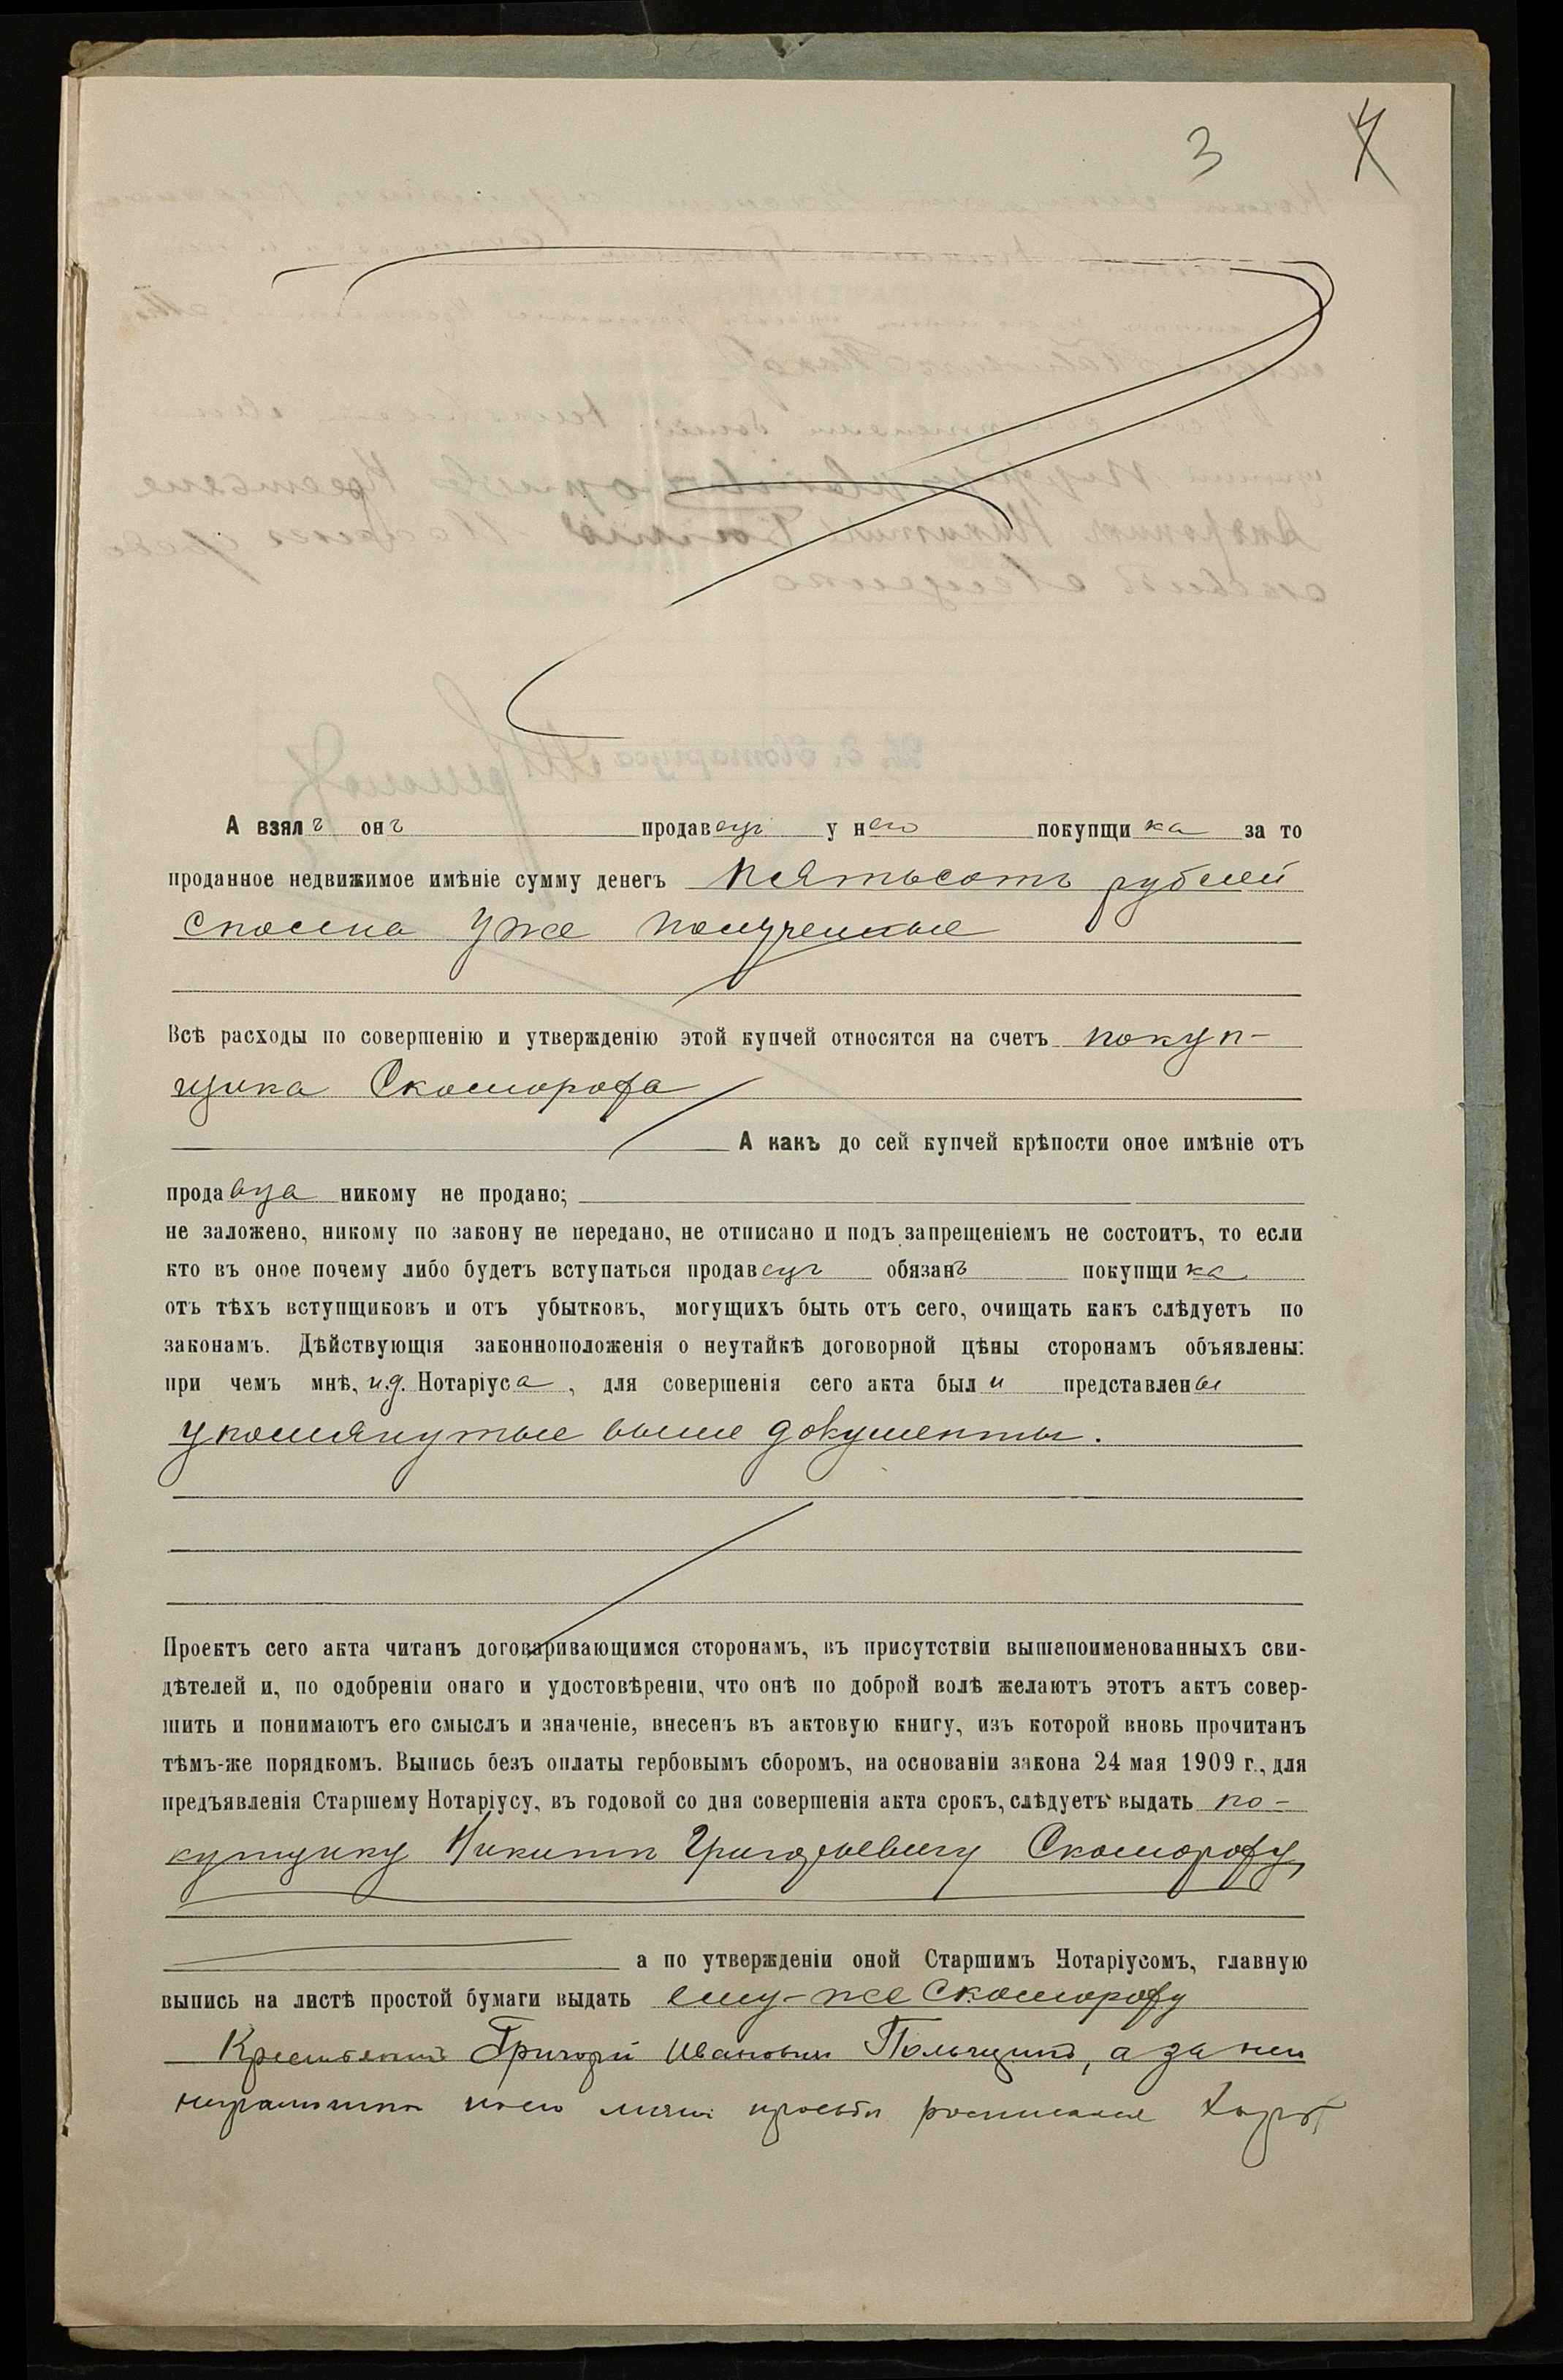 3
А взялъ онъ продавецъ у него покупщика за то
проданное недвижимое имѣніе сумму денегъ пятьсотъ рублей
сполна уже полученные
Всѣ расходы по совершенію и утвержденію этой купчей относятся на счетъ покуп-
щика Скоморофа
А какъ до сей купчей крѣпости оное имѣніе отъ
продавца никому не продано;
не заложено, никому по закону не передано, не отписано и подъ запрещеніемъ не состоитъ, то если
кто въ оное почему либо будетъ вступаться продавецъ обязанъ покупщика
отъ тѣхъ вступщиковъ и отъ убытковъ, могущихъ быть отъ сего, очищать какъ слѣдуетъ по
законамъ. Дѣйствующія законноположенія о неутайкѣ договорной цѣны сторонамъ объявлены:
при чемъ мнѣ, и.д. Нотаріуса, для совершенія сего акта были представлены
упомянутые выше документы.
Проектъ сего акта читанъ договаривающимся сторонамъ, въ присутствіи вышепоименованныхъ сви-
дѣтелей и, по одобреніи онаго и удостовѣреніи, что онѣ по доброй волѣ желаютъ этотъ актъ совер-
шить и понимаютъ его смыслъ и значеніе, внесенъ въ актовую книгу, изъ которой вновь прочитанъ
тѣмъ-же порядкомъ. Выпись безъ оплаты гербовымъ сборомъ, на основаніи закона 24 мая 1909 г., для
предъявленія Старшему Нотаріусу, въ годовой со дня совершенія акта срокъ, слѣдуетъ выдать по-
купщику Никитѣ Григорьевичу Скоморофу,
а по утвержденіи оной Старшимъ Нотаріусомъ, главную
выпись на листѣ простой бумаги выдать ему-же Скоморофу
Крестьянинъ Григорій Ивановичъ Польщинъ, а за него
неграмотнаго по его личной просьбѣ росписался